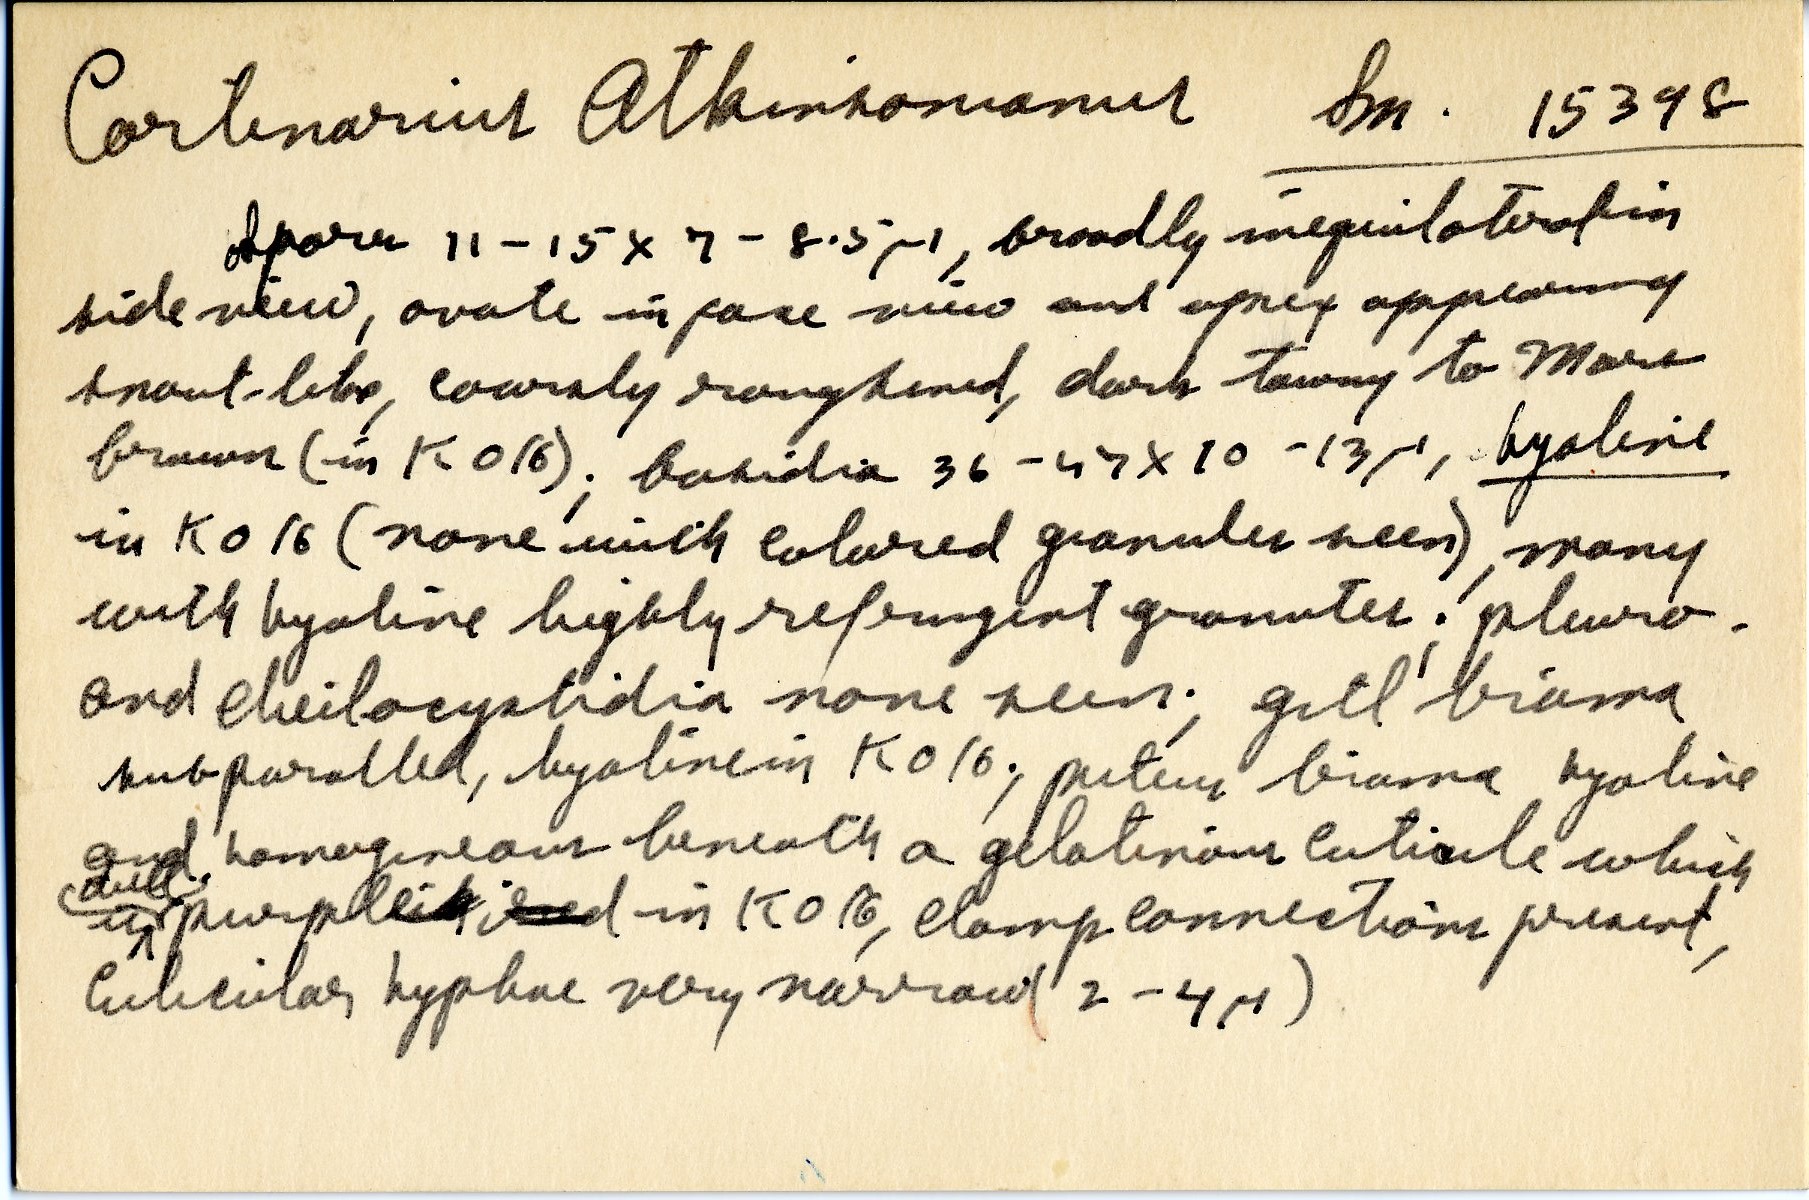 Cortinarius Atkinsonianus Sm. 15398
Spores 11-15 x 7-8.5 µ, broadly inequilateral in
side view, ovate in face view and apex appearing
snout-like, coarsly roughened, dark tawny to Mars
brown (in KOH); basidia 36-47 x 10-13 µ, hyaline
in KOH (none with colored granules seen), many
with hyaline highly refringent granules; pleuro-
and cheilocystidia none seen; gill trama
subparallel, hyaline in KOH; pileus trama hyaline
and homogeneous beneath a gelatinous cuticle which
is dull purplish in KOH, clamp connections present,
cuticular hyphae very narrow (2-4 µ)